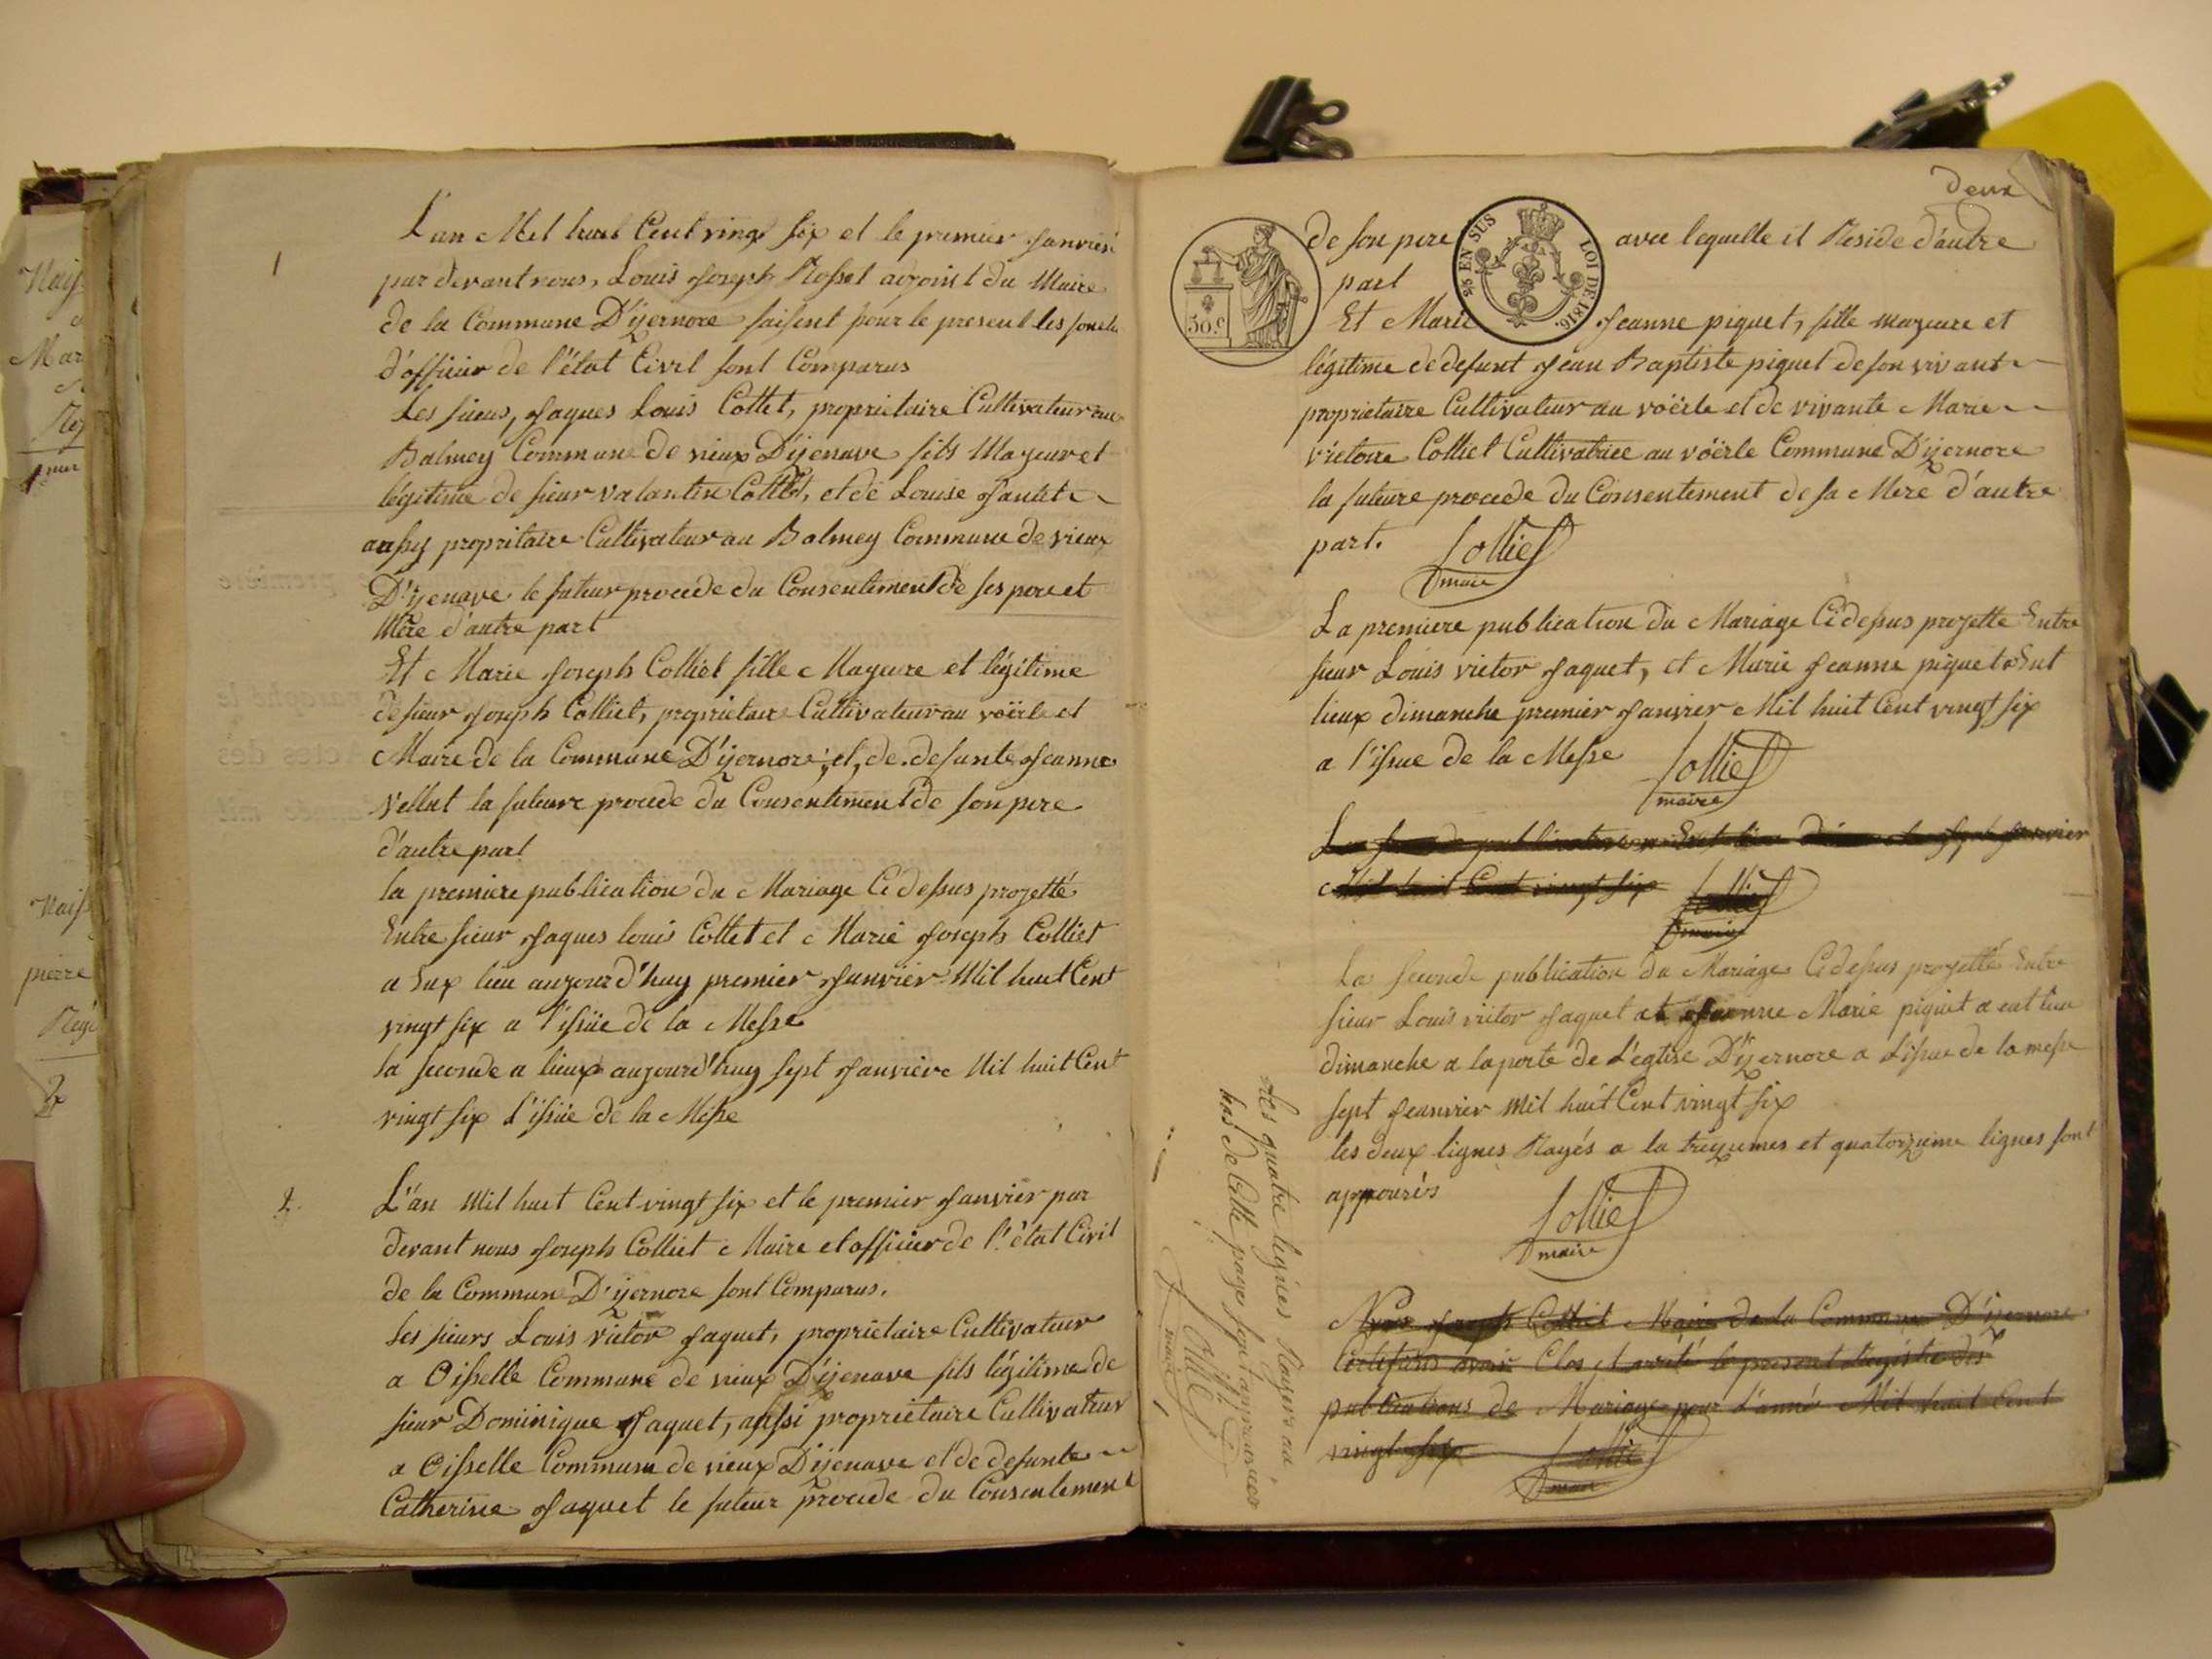 Naiss
Mar
Reg
Naiss
pierre
Reg
2
1
L'an Mil huit Cent vingt six et le premier Janvier
par devant nous, Louis Joseph Rosset adjoint du Maire
de la Commune D'ijernore faisent pour le present les foncti
d'officier de l'état Civil sont Comparus
Les sieurs, Jaques Louis Cottet, proprietaire Cultivateur au
Balmey Commune de vieux D'ijenave fils Mayeur et
légitime de sieur valantin Cottet, et de Louise Jantet
aussy propritaire Cultivateur au Balmey Commune de vieux
D'ijenave le futeur procede du Consentement de ses pere et
Mere d'autre part
Et Marie Joseph Colliet fille Mayeure et légitime
de sieur Joseph Colliet, proprietaire Cultivateur au voërle et
Maire de la Commune D'ijernore, et, de defunte Jeanne
Vellut la futeure procede du Consentement de son pere
d'autre part
la premiere publication du Mariage Ci dessus projetté
Entre sieur Jaques louis Cottet et Marie Joseph Colliet
a Eux lieu aujourd'huy premier Janvier Mil huit Cent
vingt six a l'issüe de la Messe
la seconde a lieux aujourd'huy sept Janviere Mil huit Cent
vingt six l'issüe de la Messe
2.
L'an Mil huit Cent vingt six et le premier Janvier par
devant nous Joseph Colliet Maire et officier de l'état Civil
de la Commune D'ijernore sont Comparus.
Les sieurs Louis victor Jaquet, proprietaire Cultivateur
a Oisselle Commune de vieux D'ijenave fils légitime de
sieur Dominique Jaquet, aussi proprietaire Cultivateur
a Oisselle Commune de vieux D'ijenave et de defunte
Catherine Jaquet le futeur procede du Consentement
deux
50.c
5/5 EN SUS LOI DE 1816.
de son pere avec lequelle il Reside d'autre
part
Et Marie Jeanne piquet, fille mayeure et
légitime de defunt Jean Baptiste piquet de son vivant
proprietaire Cultivateur au voërle et de vivante Marie
victoire Colliet Cultivatrice au voërle Commune D'ijernore
la futeure procede du Consentement de sa Mere d'autre
part. Colliet
maire
La premiere publication du Mariage Ci dessus projette Entre
sieur Louis victor Jaquet, et Marie Jeanne piquet a Eut
lieux dimanche premier Janvier Mil huit Cent vingt six
a l'issue de la Messe Colliet
maire
La seconde publication a Eut lieu dimanche sept Janvier
Mil huit Cent vingt six Colliet
maire
La seconde publication du Mariage Ci dessus projetté Entre
sieur Louis victor Jaquet et Jeanne Marie piquet a eut lieu
dimanche a la porte de L'église D'ijernore a L'issue de la messe
sept Jeanvier Mil huit Cent vingt six
les deux lignes Rayés a la treizumes et quatorzieme lignes sont
approuvés
Colliet
maire
Nous Joseph Colliet Maire de la Commune D'ijernore
Certifions avoir Clos et arreté le present Registre des
publications de Mariage pour L'année Mil huit Cent
vingt six Colliet
maire
les quatre lignes Rayées au
bas de Cette page sont approuvées
Colliet
maire